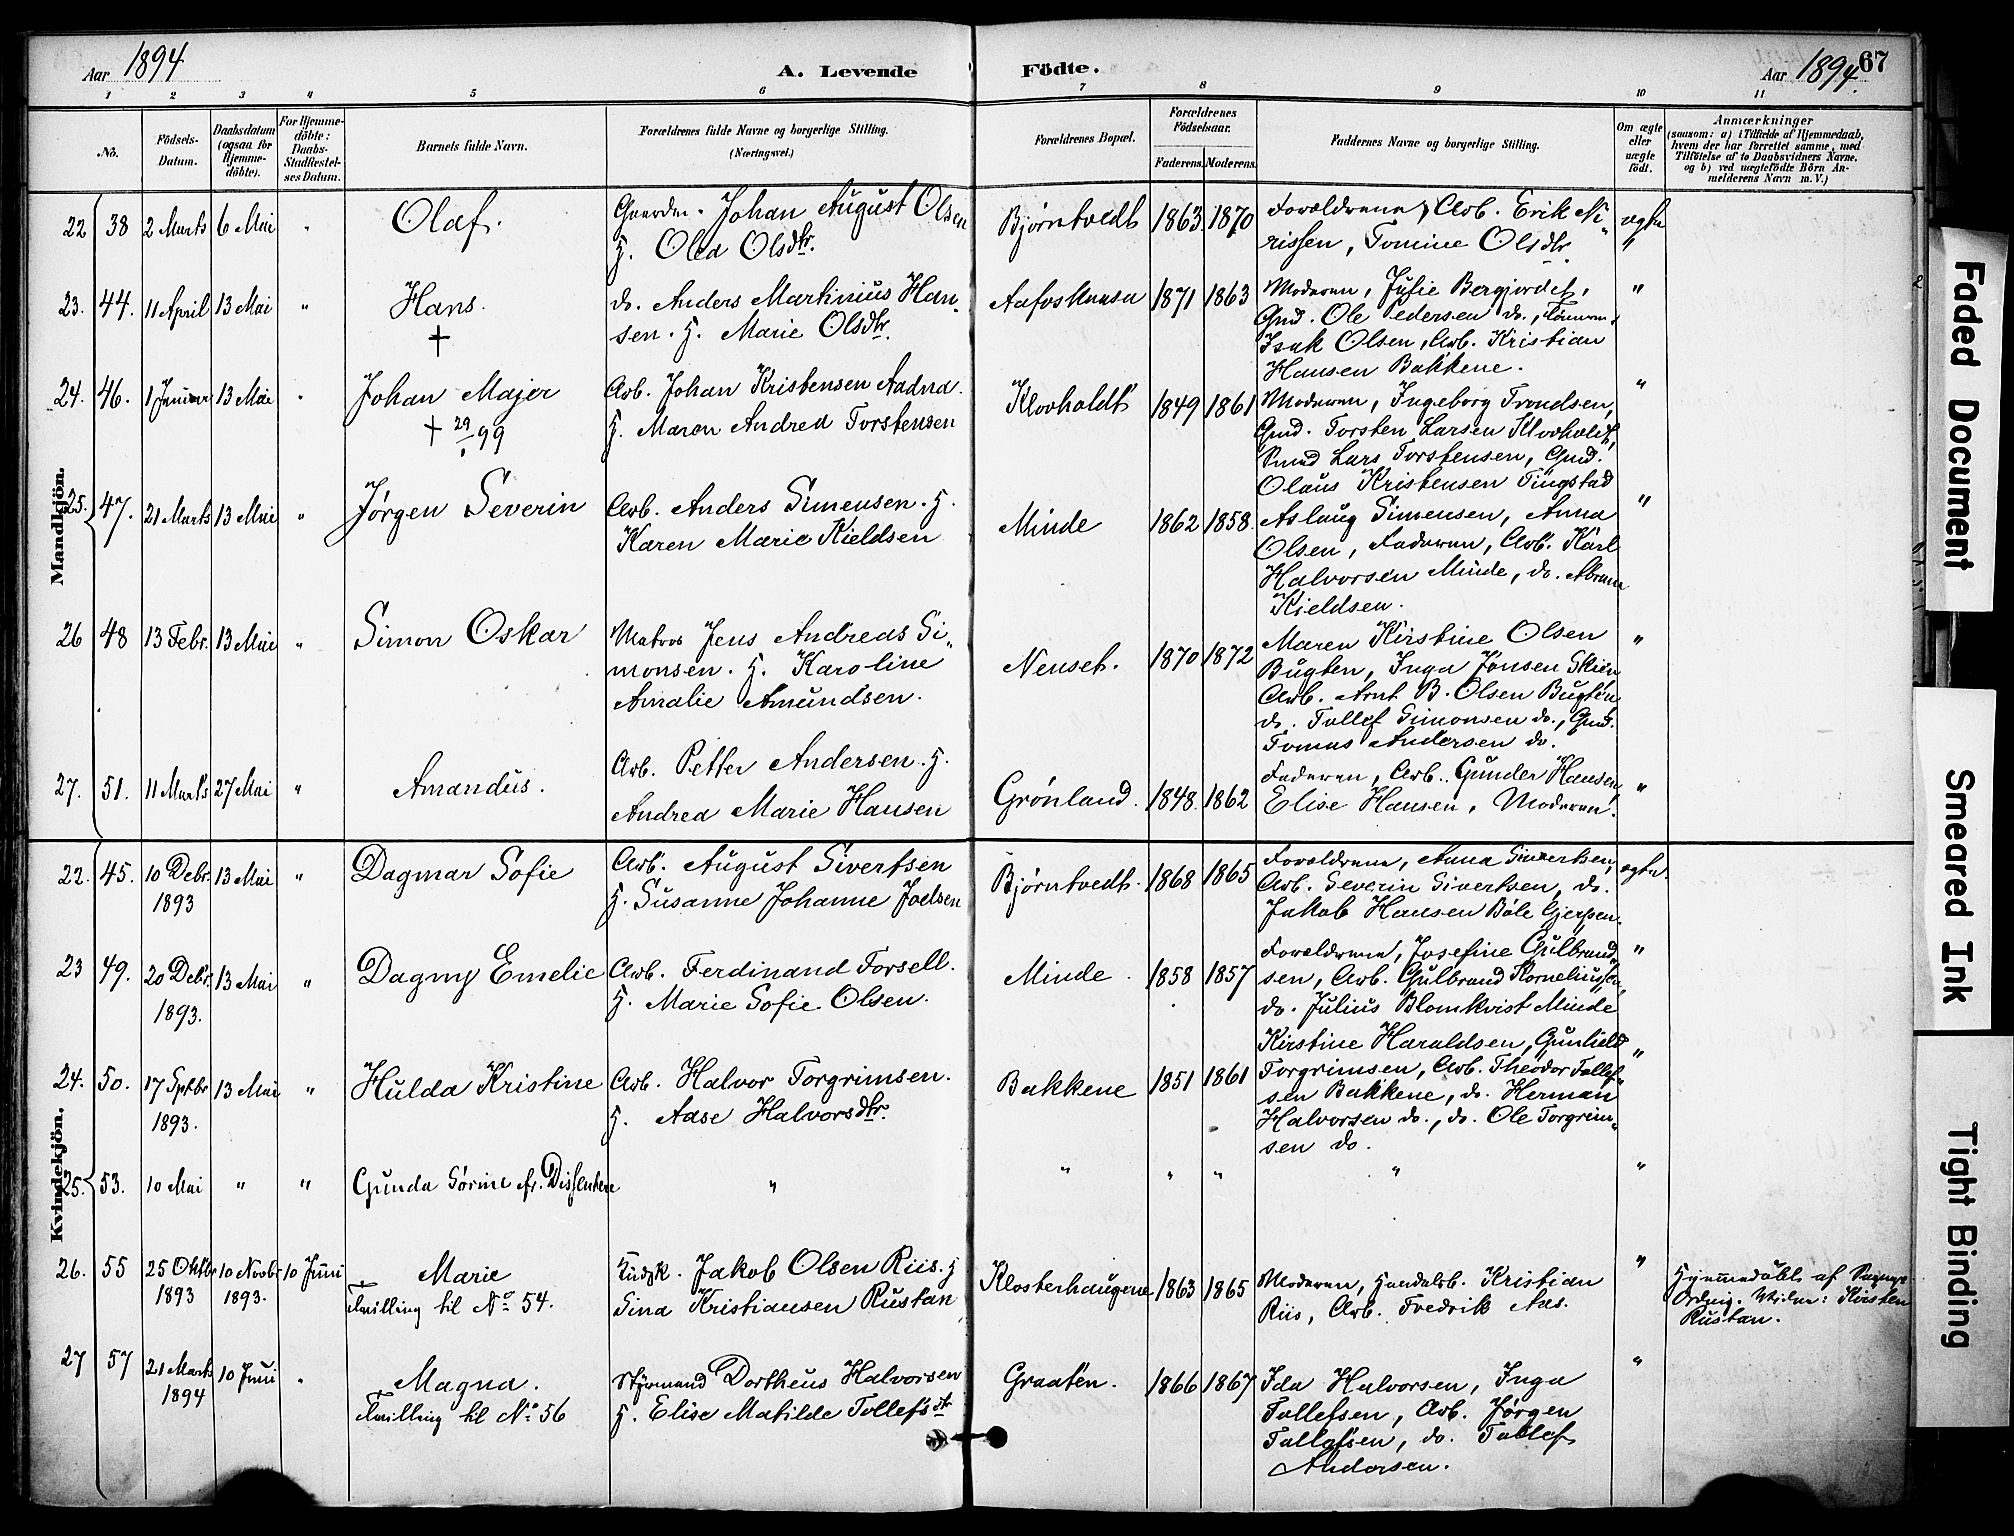 Aar 1894
A. Levende Födte.
Aar 1894.
67
1 2 3 4 5 6 7 8 9 10 11
No.
Födsels-Datum.
Daabsdatum (ogsaa for Hjemme-döbte).
For Hjemme-döbte: Daabs-Stadfæstel-ses Datum.
Barnets fulde Navn.
Forældrenes fulde Navne og borgerlige Stilling.
(Næringsvei.)
Forældrenes Bopæl.
Forældrenes Födselsaar.
Faderens. Moderens.
Faddernes Navne og borgerlige Stilling.
Om ægte eller uægte födt.
Anmærkninger
(saasom: a) i Tilfælde af Hjemmedaab, hvem der har forrettet samme, med Tilföielse af to Daabsvidners Navne, og b) ved uægtefödte Börn An-melderens Navn m. V.)
Mandkjön.
22 38 2 Marts 6 Mai " Olaf. Gaardbr. Johan August Olsen
H. Olea Olsdtr. Bjørntvedt 1863 1870 Forældrene, Arb. Erik Ni-
rissen, Tomine Olsdtr. ægte
23. 44. 11 April 13 Mai " Hans. do. Anders Martinius Han-
sen. H. Marie Olsdtr. 1871 1863 Moderen, Julie Bergjordet,
Gmd. Ole Pedersen do.,
Isak Olsen, Arb. Kristian
Hansen Bakkene. "
24. 46. 1 Januar 13 Mai " Johan Majer
+ 29 99
Arb. Johan Kristensen
H. Maren Andrea Torstensen Klovholdt 1849 1861 Moderen, Ingeborg Trondsen,
Gmd. Torsten Larsen Klovholdt,
Lars Torstensen, Gmd.
Olaus Kristensen Tingstad "
25. 47. 21 Marts 13 Mai " Jørgen Severin Arb. Anders Simensen. H.
Karen Marie Kieldsen Minde 1862 1858. Aslaug Simensen, Anna
Olsen, Faderen, Arb. Karl
Halvorsen Minde, do. Abram
Kieldsen. "
26 48 13 Febr. 13 Mai " Simon Oskar Matros Jens Andreas Si-
monsen. H. Karoline
Amalie Amundsen. Nenset. 1870 1872 Maren Kirstine Olsen
Bugten, Inga Jonsen Skien
Arb. Arnt B. Olsen Bugten,
do. Tollef Simonsen do., Gmd.
Tomas Andersen do. "
27. 51. 11 Marts 27 Mai " Amandus. Arb. Petter Andersen. H.
Andrea Marie Hansen Grönland. 1848. 1862 Faderen, Arb. Gunder Hansen,
Elise Hansen, Moderen. "
Kvindekjön.
22. 45. 10 Debr. 1893 13 Mai " Dagmar Sofie Arb. August Sivertsen
H. Susanne Johanne Joelsen Bjørntvedt. 1868 1865 Forældrene, Anna Sivertsen,
Arb. Severin Sivertsen, do.
Jakob Hansen Böle Gjerpen. ægte.
23 49. 20 Debr. 1893. 13 Mai " Dagny Emelie Arb. Ferdinand Forsell.
H. Marie Sofie Olsen. Minde. 1858 1857 Forældrene, Josefine Gulbrand-
sen, Arb. Gulbrand Korneliussen,
do. Julius Blomkvist Minde "
24. 50. 17 Septbr 1893. 13 Mai " Hulda Kristine Arb. Halvor Torgrimsen.
H. Aase Halvorsdtr. Bakkene 1851 1861 Kirstine Haraldsen, Gunhild
Torgrimsen, Arb. Theodor Tollef-
sen Bakkene, do. Herman
Halvorsen do., do. Ole Torgrim-
sen do. "
25. 53. 10 Mai " " Gunda Sörine fr. Dissentere " " " " " "
26. 55 25 Oktbr 1893 10 Novbr 1893. 10 Juni Marie
Tvilling til No. 54. Jakob Olsen Riis. H
Sina Kristiansen Rustan Klosterhaugene 1863 1865 Moderen, Handelsb. Kristian
Riis, Arb. Fredrik Aas. " Hjemmedöbt af
Kirsten
Rustan.
27 57 21 Marts 1894 10 Juni " Magna.
Tvilling til No. 56 Styrmand Dortheus Halvorsen
H. Elise Matilde Tollefsdtr Graaten. 1866 1867 Ida Halvorsen, Inga
Tollefsen, Arb. Jørgen
Tollefsen, do. Tollef
Andersen. "
Faded Document
Smeared Ink
Tight Binding